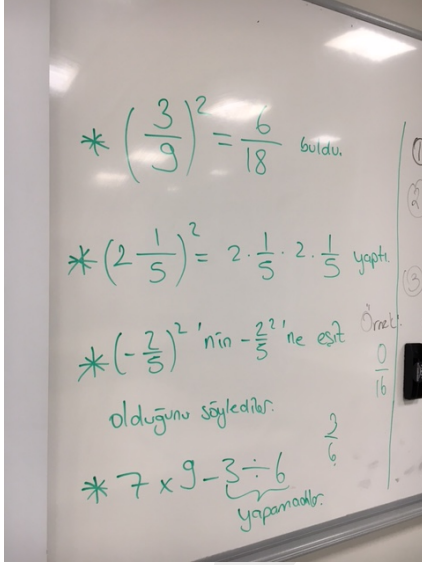 * (3/9)² = 6/18 buldu.
* (2 1/5)² = 2 · 1/5 · 2 · 1/5 yaptı.
* (-2/5)² 'nin -2²/5 'ne eşit
olduğunu söylediler.
* 7 x 9 - 3 ÷ 6
yapamadılar.
3/6
①
②
③
Örnek:
0/16